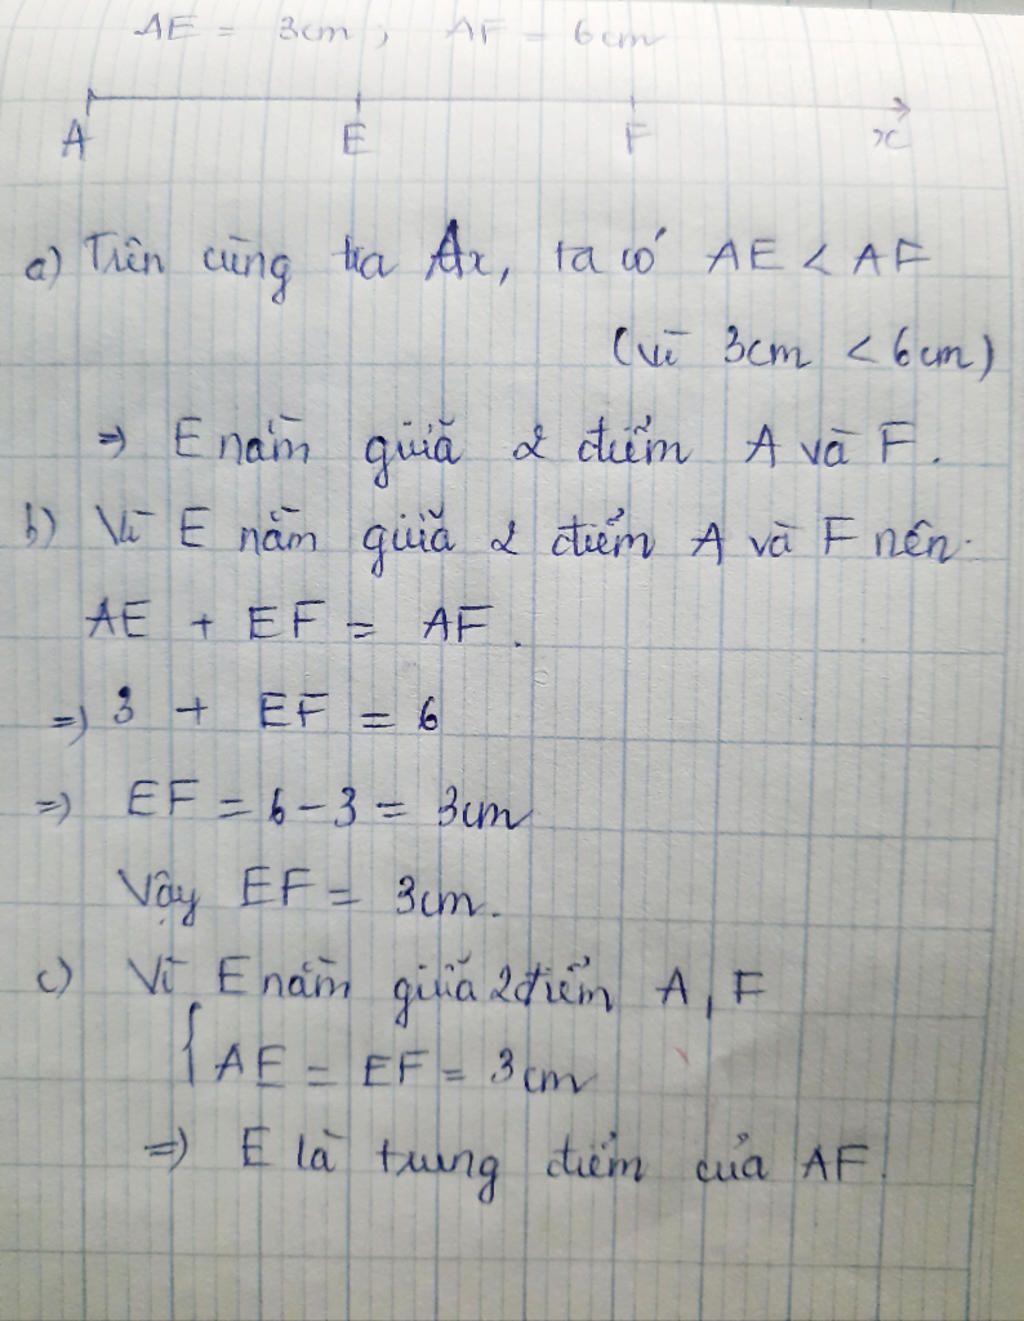 AE = 3cm ; AF = 6cm
A E F x
a) Trên cùng tia Ax, ta có AE < AF
(vì 3cm < 6cm)
⇒ E nằm giữa 2 điểm A và F.
b) Vì E nằm giữa 2 điểm A và F nên.
AE + EF = AF.
⇒ 3 + EF = 6
⇒ EF = 6 - 3 = 3cm
Vậy EF = 3cm.
c) Vì E nằm giữa 2 điểm A, F
{ AE = EF = 3cm
⇒ E là trung điểm của AF.